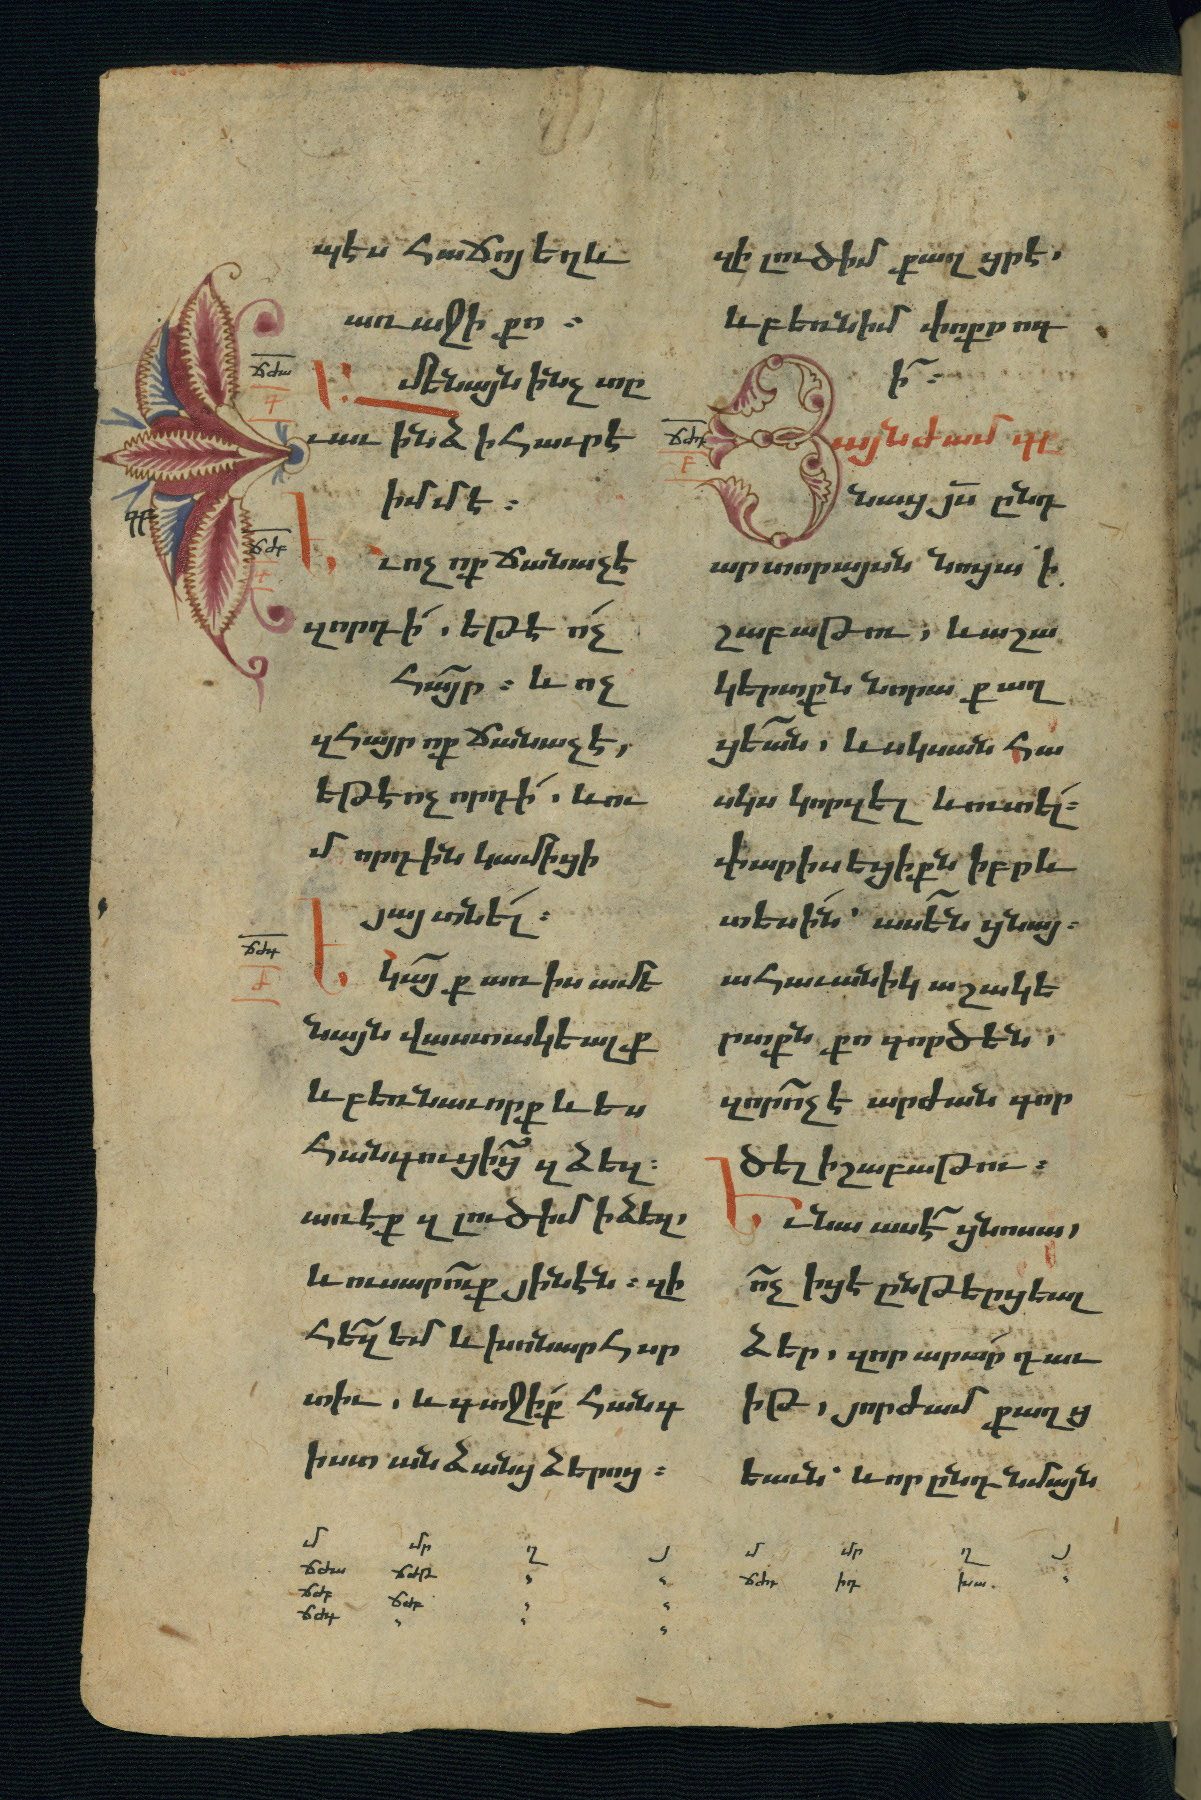 պէս հաճոյ եղև
առաջի քո ։
Ա մենայն ինչ տը
ւաւ ինձ ի հաւրէ
իմմէ ։
Ե ւ ոչ ոք ճանաչէ
զորդի՛ , եթէ ո՛չ
հա՛յր ։ և ոչ
զհայր ոք ճանաչէ ,
եթէ ոչ որդի՛ . և ու
մ որդին կամիցի
յայտնե՛լ ։
Ե կա՛յք առ իս ամե
նայն վաստակեալք
և բեռնաւորք և ես
հանգուցի՛ց զձեզ ։
առէք զլուծ իմ ի ձեզ ,
և ուսարո՛ւք յինէն ։ զի
հե՛զ եմ և խոնարհ սր
տիւ . և գտջի՛ք հանգ
իստ անձանց ձերոց ։
զի լուծ իմ քաղցր է ,
և բեռն իմ փոքրոգ
ի՛ ։
Յ այնժամ գը
նայ յս ընդ
արտորայսն նոյսա ի
շաբաթու , և աշա
կերտքն նորա քաղ
ցեա՛ն , և սկսան հա
սկս կորզել և ուտե՛լ ։
փարիսեցիքն իբրև
տեսին՝ ասեն ցնայ ։
ահաւանիկ աշակե
րտքն քո գործեն ,
զոր ո՛չ է արժան գոր
ծել ի շաբաթու ։
Ե ւ նա ասէ ցնոսա ,
ո՛չ իցէ ընթերցեալ
ձեր , զոր արար դաւ
իթ , յորժամ քաղց
եաւն՝ և որ ընդ նմայն
ճժա
ճժբ
ճժգ
ճժդ
մ մր ղ յ
ճժա ճժթ
ճժբ ճժբ
ճժգ
մ մր ղ յ
ճժդ իդ խա